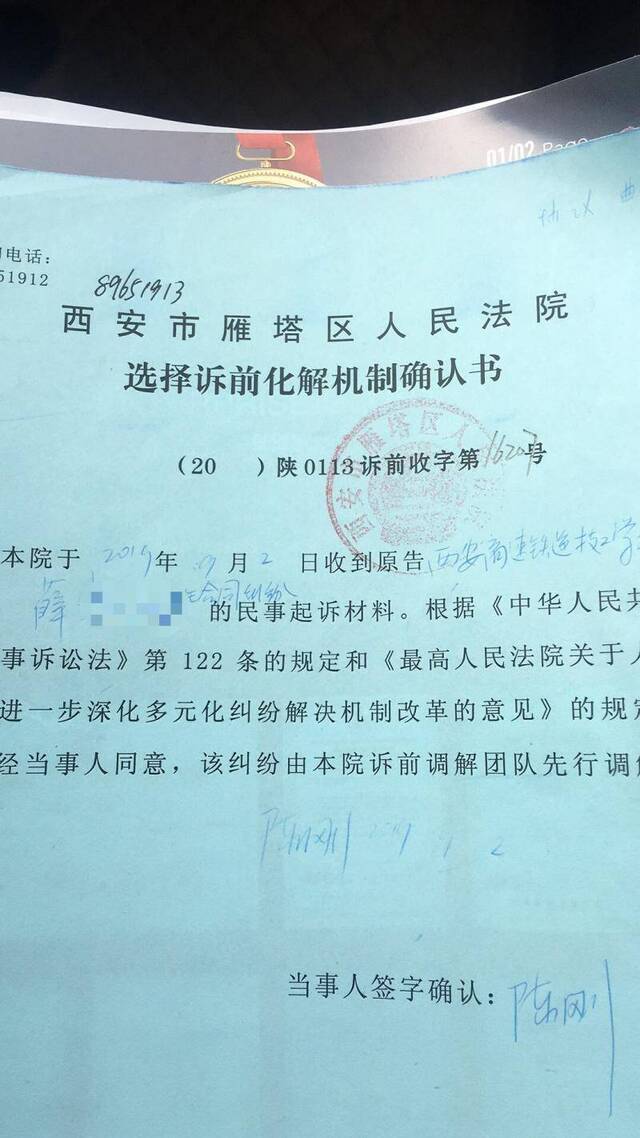 01/02 Page
协议
电话：
51912
89651913
西安市雁塔区人民法院
选择诉前化解机制确认书
（20　）陕0113诉前收字第16207号
西安市雁塔区人
本院于2019年 月2日收到原告西安高速铁道技工学
薛 合同纠纷的民事起诉材料。根据《中华人民共
事诉讼法》第122条的规定和《最高人民法院关于人
进一步深化多元化纠纷解决机制改革的意见》的规定
经当事人同意，该纠纷由本院诉前调解团队先行调解
陈刚 2019
当事人签字确认：陈刚